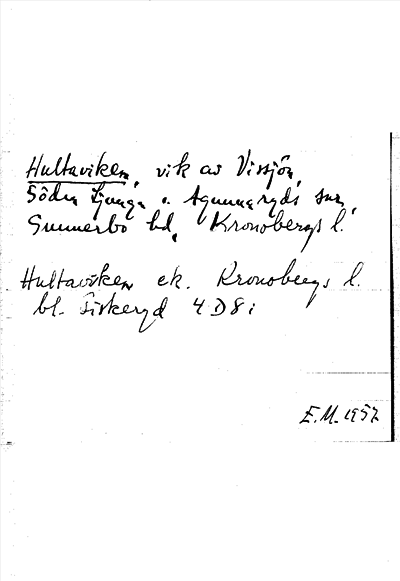 Hultaviken, vik av Vissjön,
Södra Ljunga o. Agunnaryds snr,
Sunnerbo hd, Kronobergs l.
Hultaviken ek. Kronobergs l.
bl. Sirkeryd 4 D 8 i
E.M. 1957